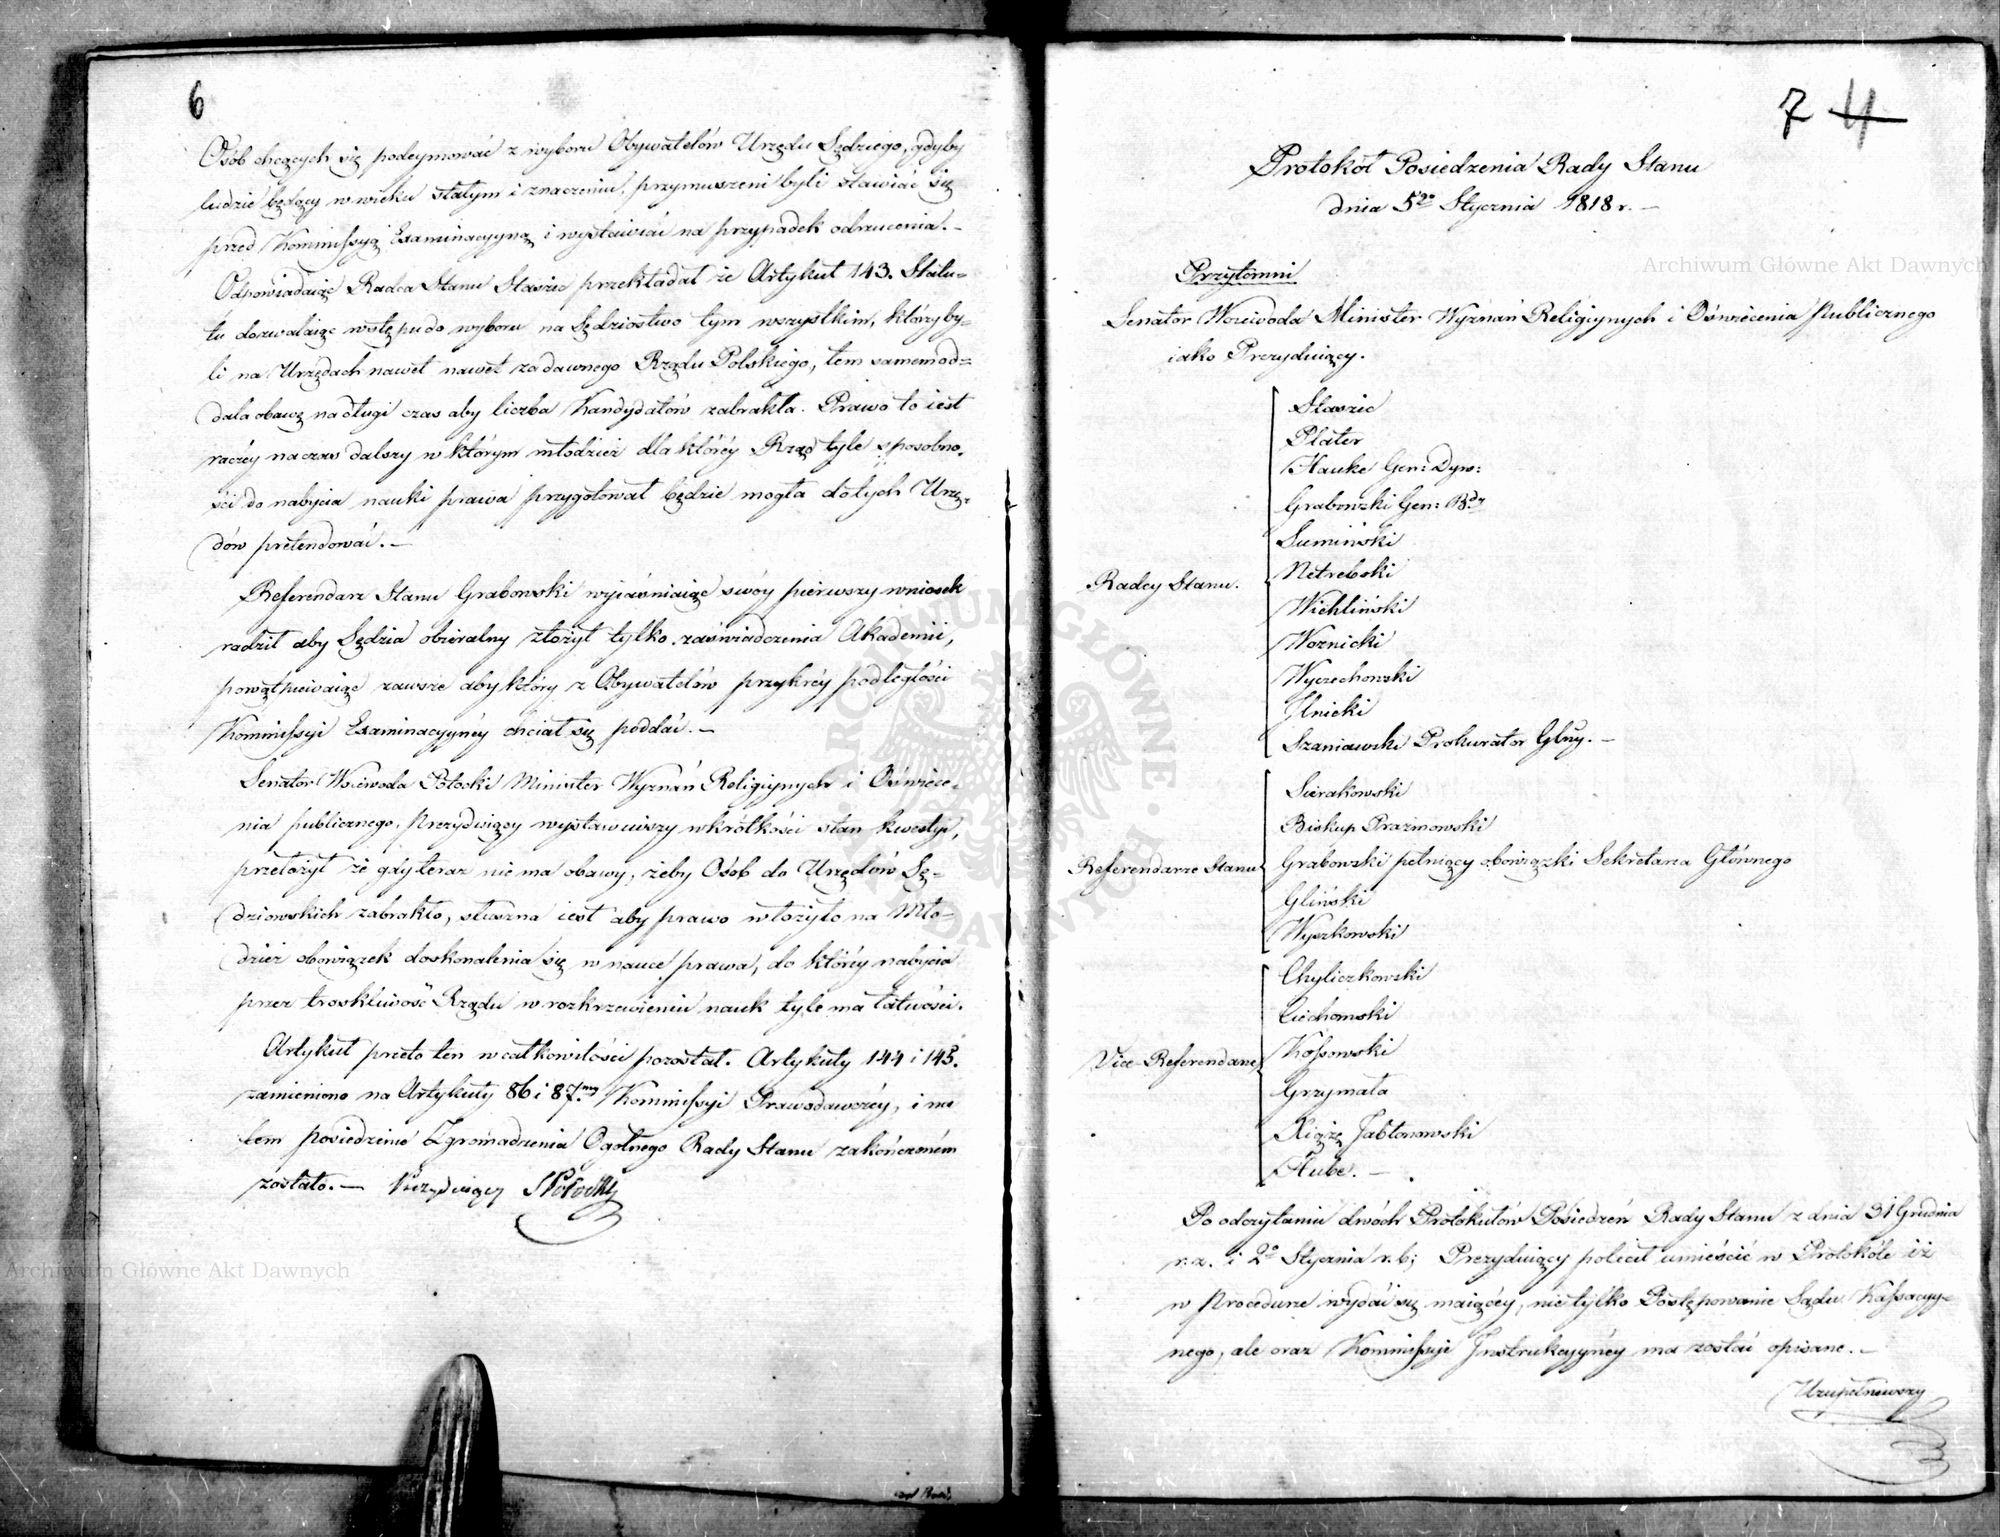 6
Osób chcących się podeymować z wyboru Obywatelów Urzędu Sędziego, gdyby
ludzie będący w wieku stałym i znaczeniu, przymuszeni byli stawiać się
przed Kommissyą Examinacyyną i wystawiać na przypadek odrzucenia. –
Odpowiadaiąc Radca Stanu Staszic przekładał że Artykuł 143. Statu-
tu dozwalaiąc wstępu do wyboru na Sędziostwo tym wszystkim, którzy by-
li na Urzędach nawet nawet za dawnego Rządu Polskiego, tem samem od-
dala obawę na długi czas aby liczba Kandydatów zabrakła. Prawo to iest
raczéy na czas dalszy w którym młodzież dla któréy Rząd tyle sposobno-
ści do nabycia nauki prawa przygotował będzie mogła do tych Urzę-
dów pretendować. –
Referendarz Stanu Grabowski wyiaśniaiąc swóy pierwszy wniosek
radził aby Sędzia obieralny złożył tylko zaświadczenia Akademii,
powątpiewaiąc zawsze aby który z Obywatelów przykréy podległości
Kommissyi Examinacyynéy chciał się poddać. –
Senator Woiewoda Potocki Minister Wyznań Religiynych i Oświece-
nia publicznego, Prezyduiący wystawiwszy w krótkości stan kwestyi,
przełożył że gdy teraz nie ma obawy, żeby Osób do Urzędów Sę-
dziowskich zabrakło, słuszna iest aby prawo włożyło na Mło-
dzież obowiązek doskonalenia się w nauce prawa, do któréy nabycia
przez troskliwość Rządu w rozkrzewieniu nauk tyle ma łatwości.
Artykuł przeto ten w całkowitości pozostał. Artykuły 144 i 145.
zamieniono na Artykuły 86 i 87.my Kommissyi Prawodawczéy, i na
tem posiedzenie Zgromadzenia Ogólnego Rady Stanu zakończonem
zostało. – Prezyduiący S Potocki
7 4
Protokół Posiedzenia Rady Stanu
dnia 5go Stycznia 1818 r. –
Przytomni
Senator Woiewoda Minister Wyznań Religiynych i Oświecenia Publicznego
iako Prezyduiący.
Radcy Stanu.
Staszic
Plater
Hauke Gen: Dyw:
Grabowski Gen: Bdy
Sumiński
Netrebski
Wichliński
Woznicki
Wyczechowski
Ilnicki
Szaniawski Prokurator Głny. –
Referendarze Stanu
Sierakowski
Biskup Prażmowski
Grabowski pełniący obowiązki Sekretarza Głównego
Gliński
Wyszkowski
Vice-Referendarze
Chyliczkowski
Ciechomski
Kossowski
Grzymała
Xiążę Jabłonowski
Hube. –
Po odczytaniu dwóch Protokułów Posiedzeń Rady Stanu z dnia 31 Grudnia
r. z. i 2o Stycznia r. b; Prezyduiący polecił umieścić w Protokóle iż
w Procedurze wydać się maiącéy, nie tylko Postępowanie Sądu Kassacyy-
nego, ale oraz Kommissyi Instrukcyynéy ma zostać opisane. –
Uzupełniwszy
Archiwum Główne Akt Dawnych
Archiwum Główne Akt Dawnych
ARCHIWUM GŁÓWNE AKT DAWNYCH